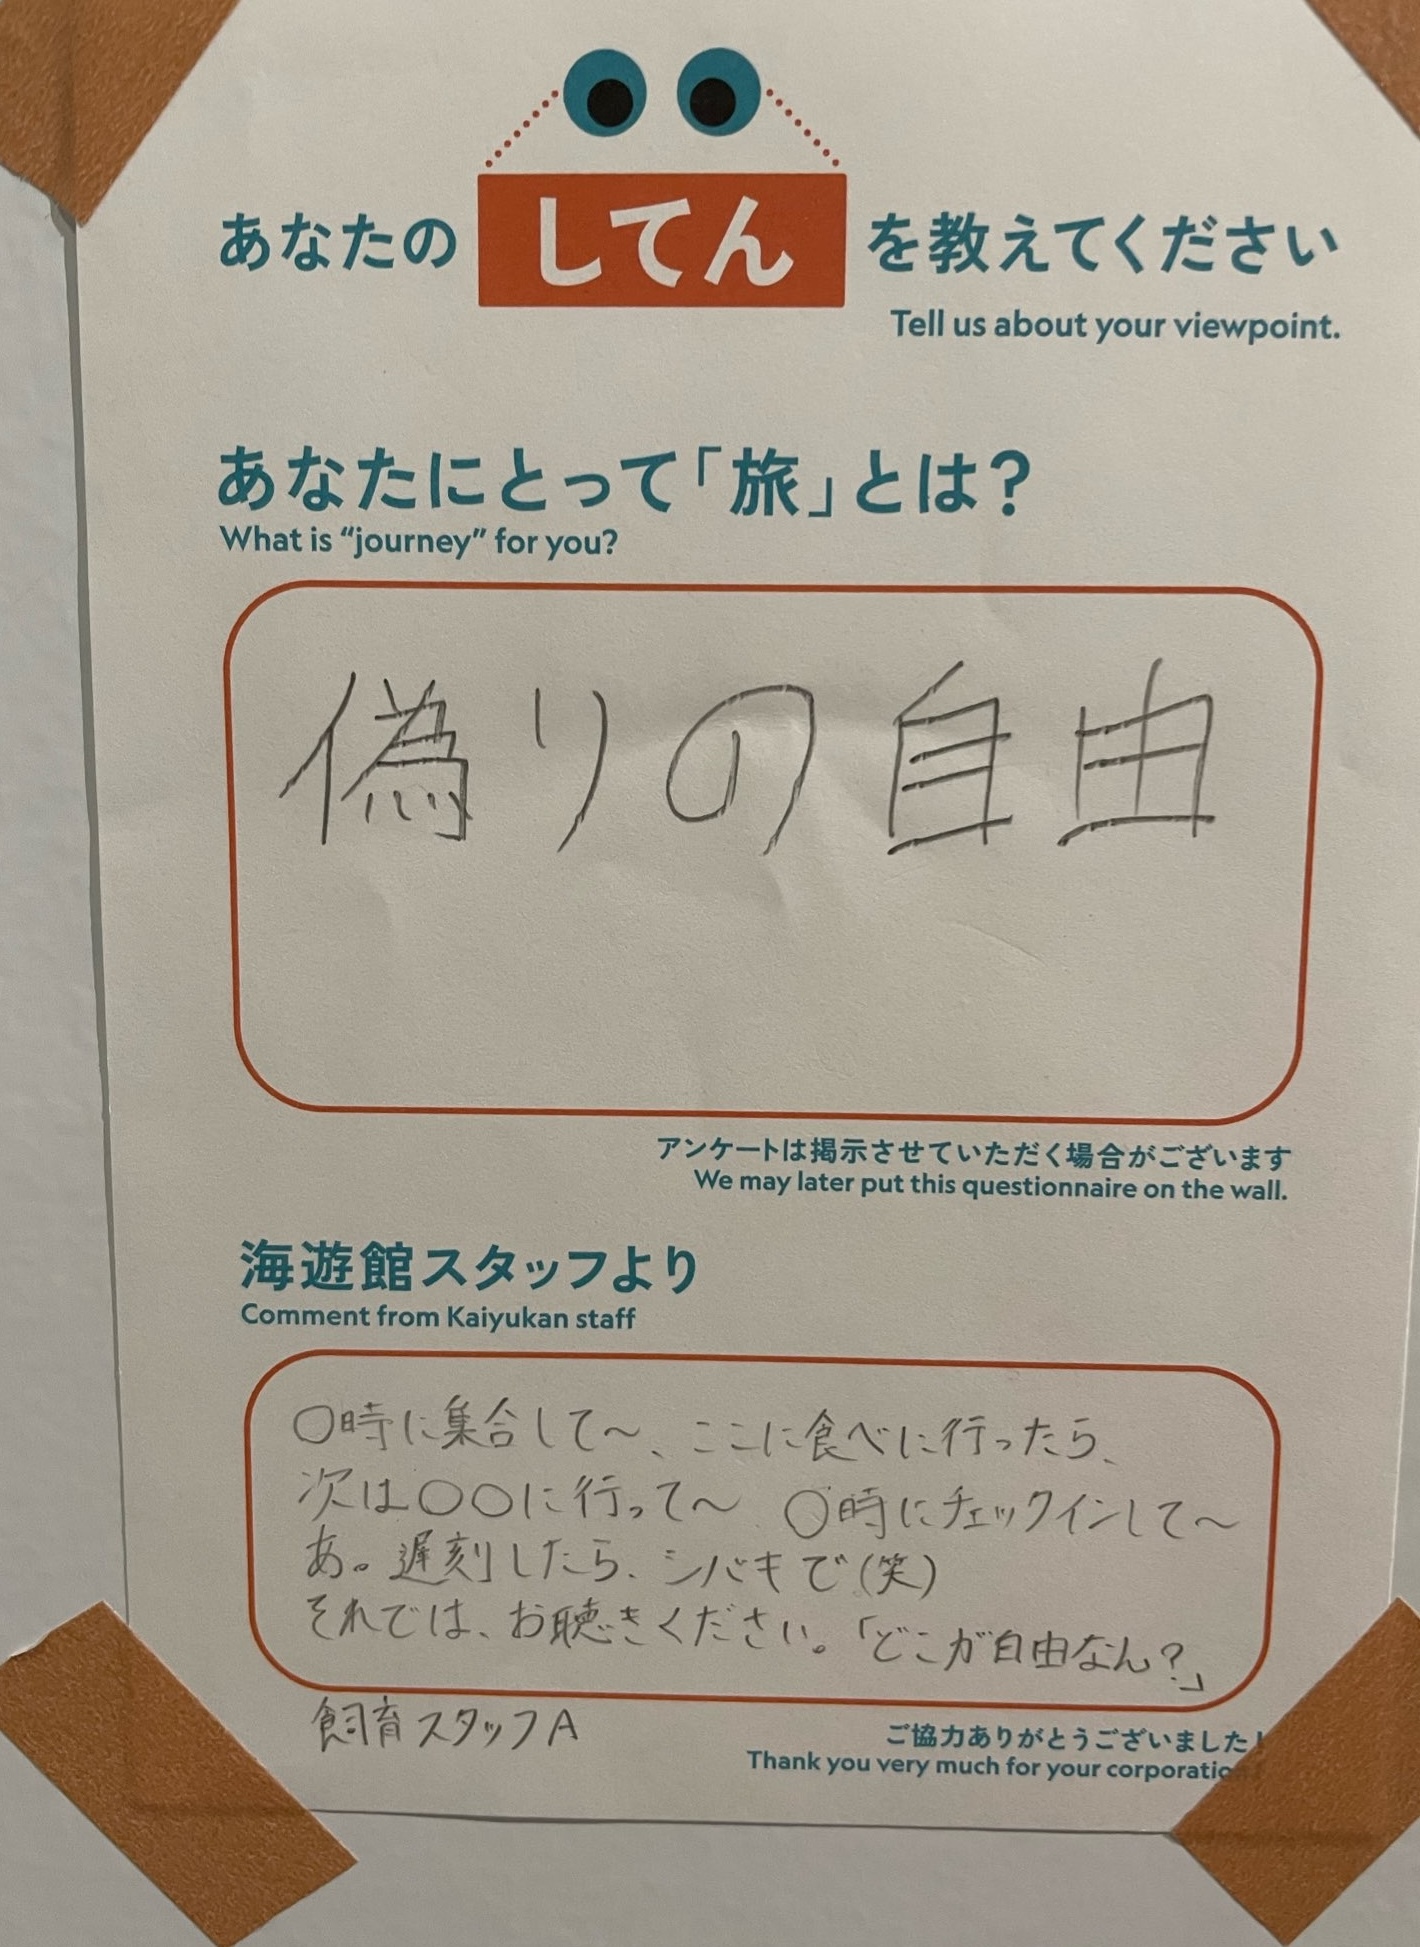 あなたの してん を教えてください
Tell us about your viewpoint.
あなたにとって「旅」とは？
What is “journey” for you?
偽りの自由
アンケートは掲示させていただく場合がございます
We may later put this questionnaire on the wall.
海遊館スタッフより
Comment from Kaiyukan staff
〇時に集合して〜、ここに食べに行ったら、
次は〇〇に行って〜 〇時にチェックインして〜
あ。遅刻したら、シバキで(笑)
それでは、お聴きください。「どこが自由なん？」
飼育スタッフA
ご協力ありがとうございました！
Thank you very much for your corporation!